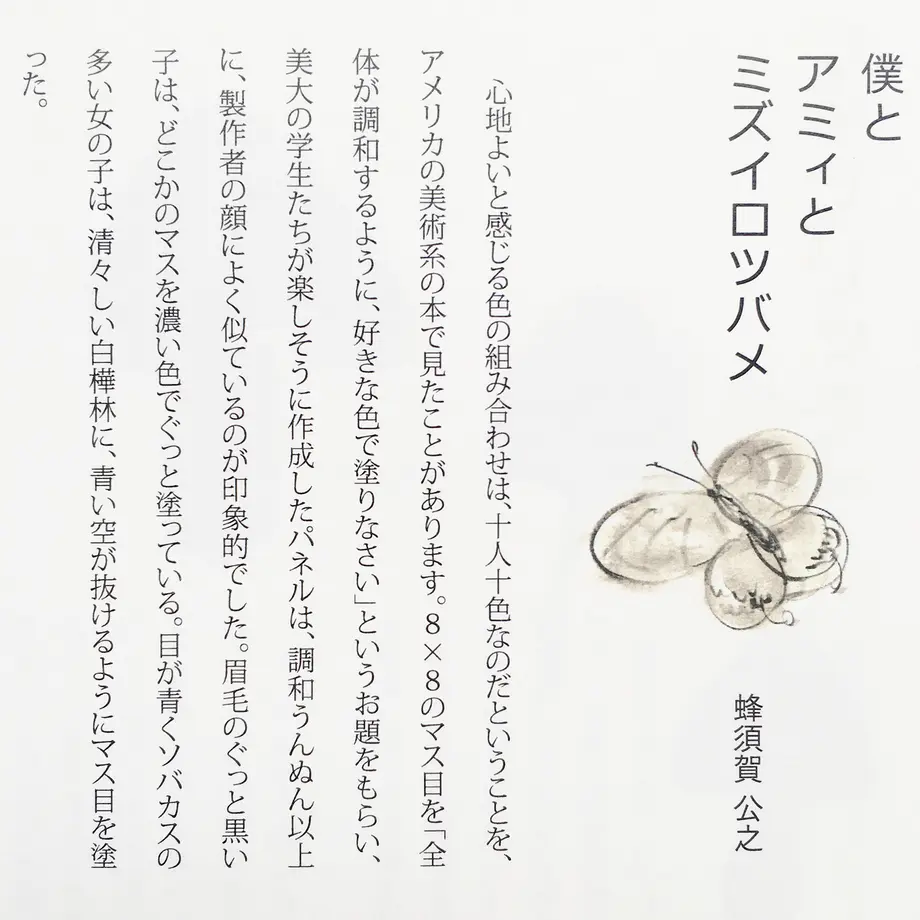 僕と
アミィと
ミズイロツバメ
蜂須賀 公之
心地よいと感じる色の組み合わせは、十人十色なのだということを、
アメリカの美術系の本で見たことがあります。8×8のマス目を「全
体が調和するように、好きな色で塗りなさい」というお題をもらい、
美大の学生たちが楽しそうに作成したパネルは、調和うんぬん以上
に、製作者の顔によく似ているのが印象的でした。眉毛のぐっと黒い
子は、どこかのマスを濃い色でぐっと塗っている。目が青くソバカスの
多い女の子は、清々しい白樺林に、青い空が抜けるようにマス目を塗
った。